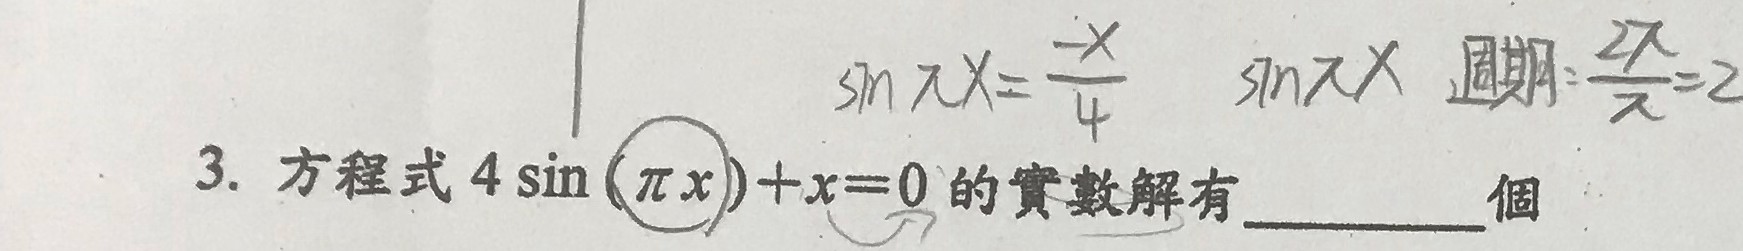 sin πx = -x/4  sin πx 週期: 2π/π = 2
3. 方程式 4 sin (πx)+x=0 的實數解有________個